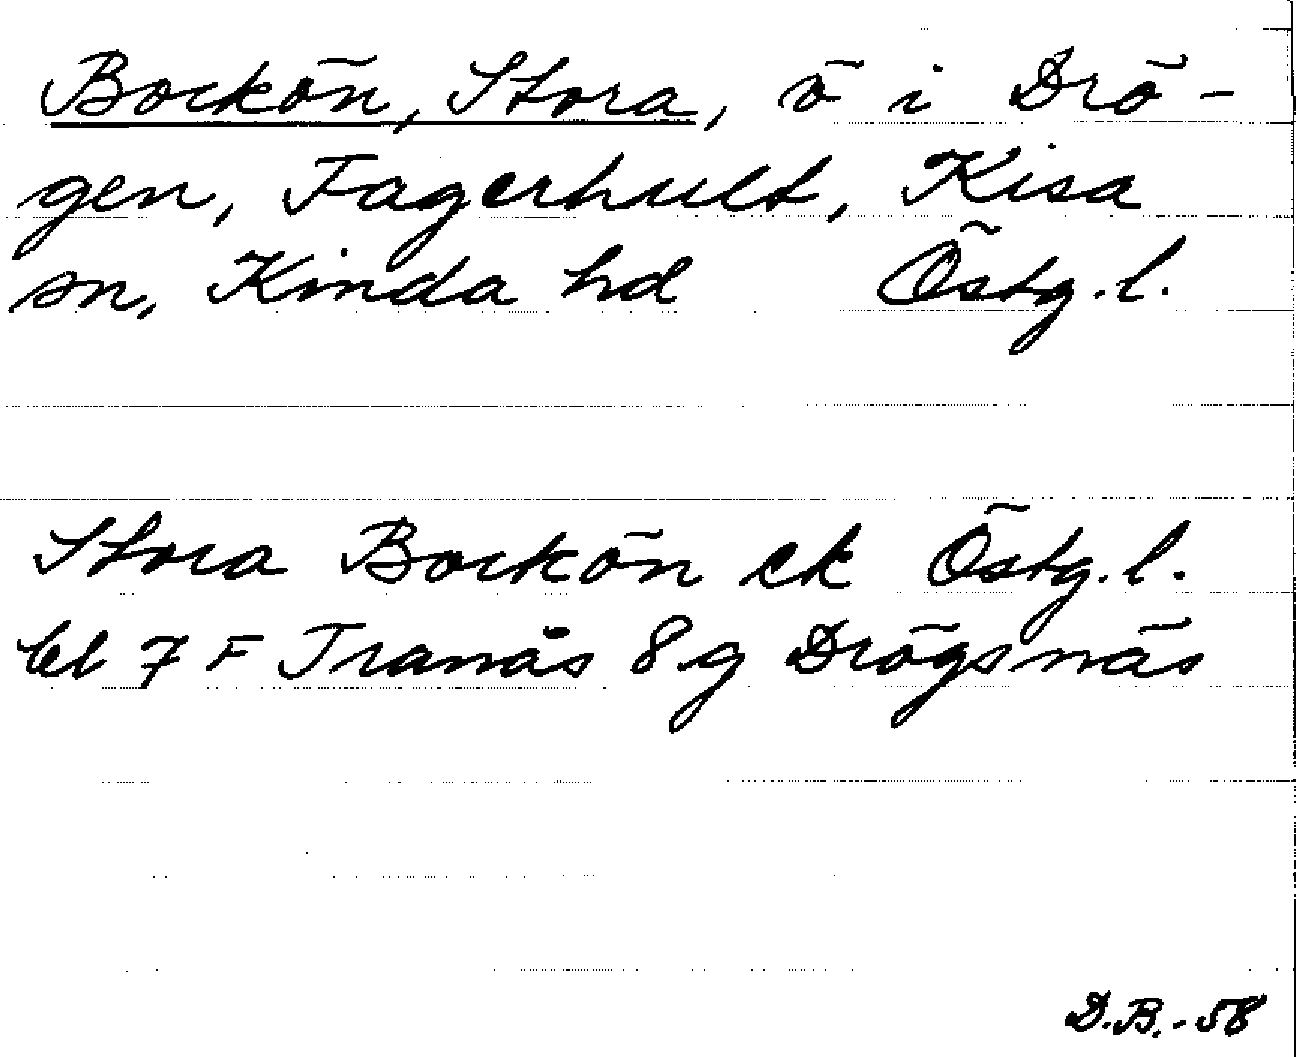 Bockön, Stora, ö i Drö-
gen, Fagerhult, Kisa
sn, Kinda hd Östg.l.
Stora Bockön ek Östg.l.
bl 7 F Tranås 8 g Drögsnäs
D.B.-58